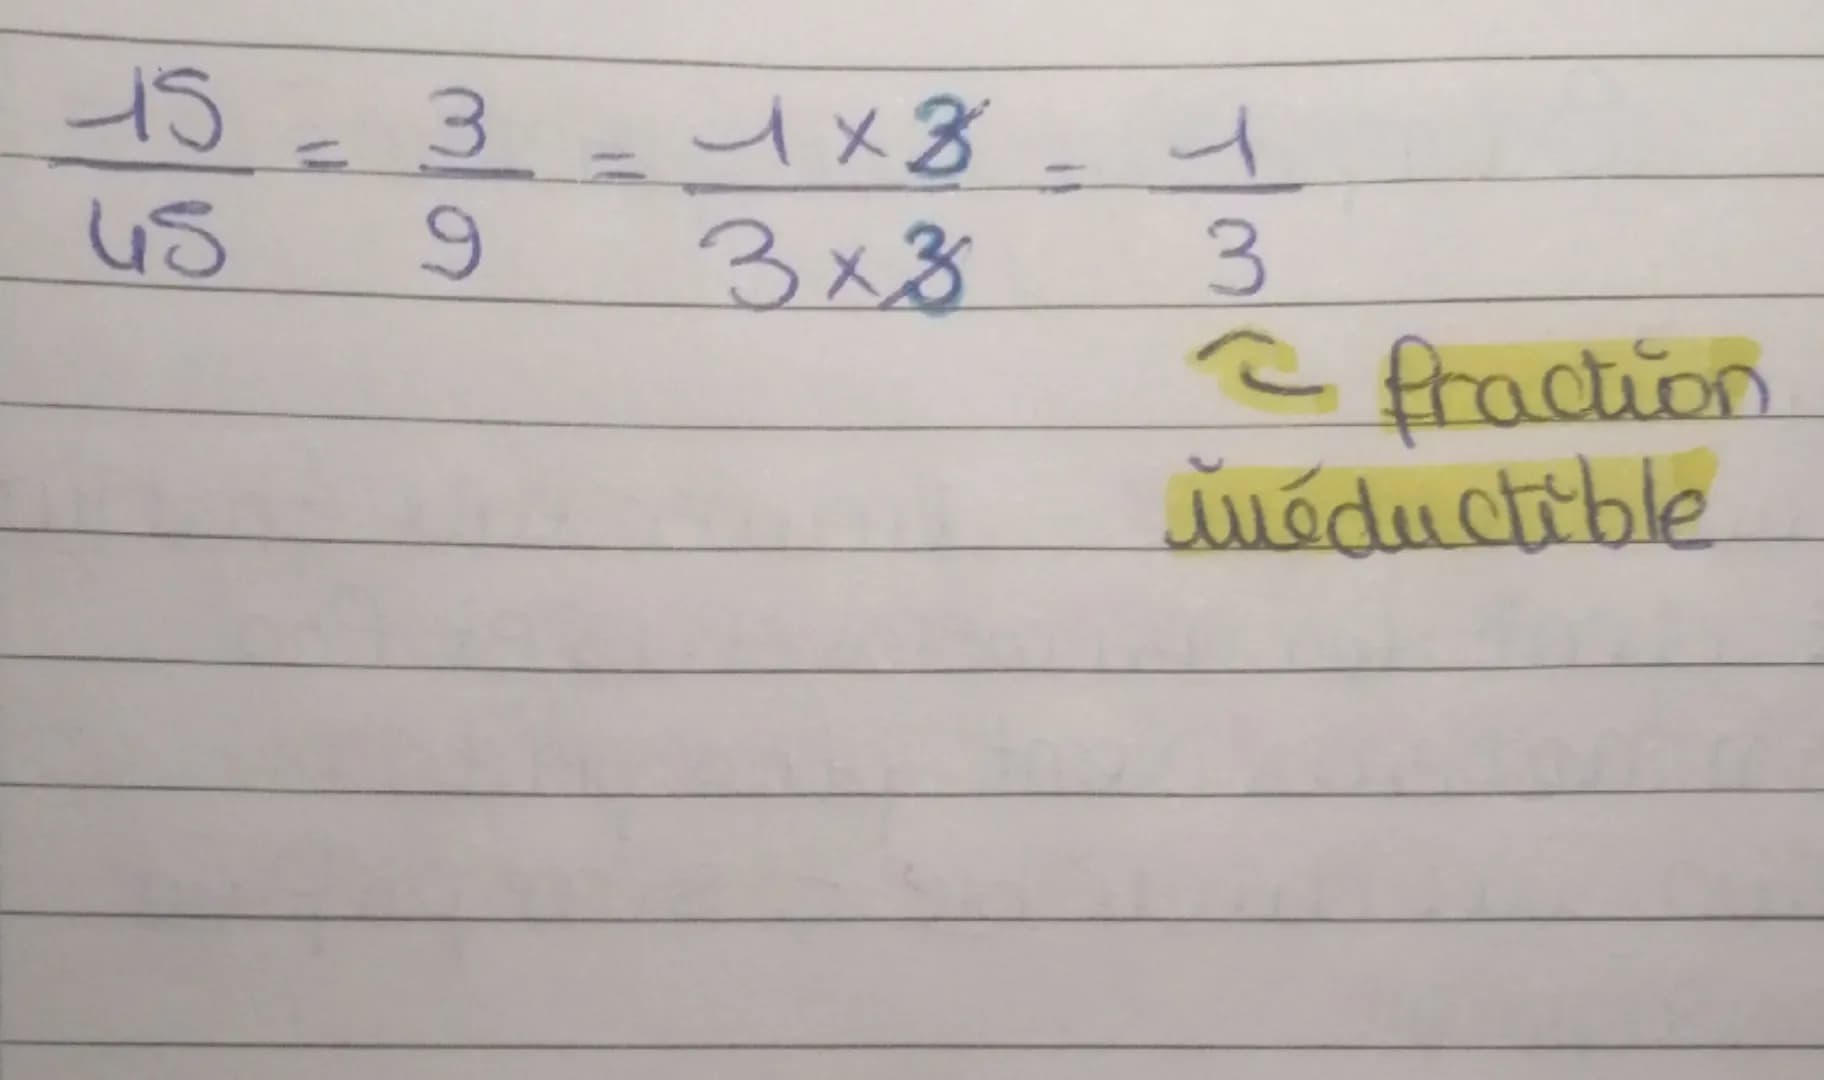 15/45 = 3/9 = 1 × 3/3 × 3 = 1/3
fraction
irréductible